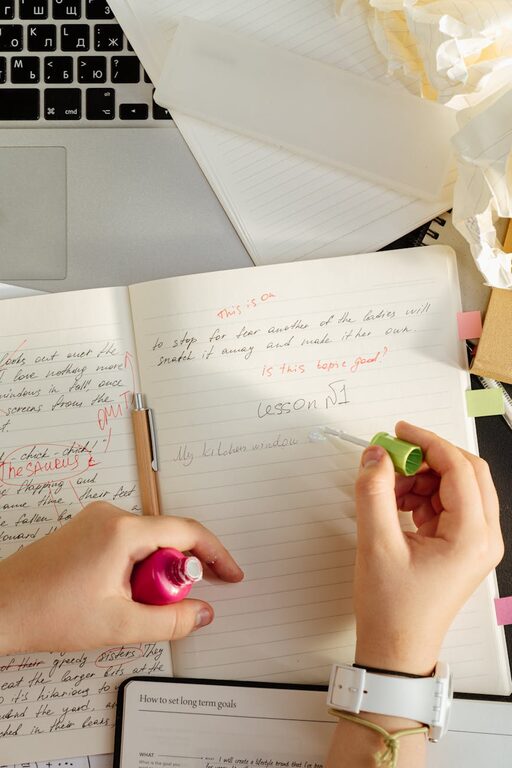 Г Ш Щ З
О Л Д Ж
Ь Б Ю
cmd
looks out over the
love nothing more
windows in fall once
screens from the
OMIT
chick-chick!
Thesaurus
flapping and
same time, their feet
fallen
This is on
to stop for fear another of the ladies will
snatch it away and make it her own.
Is this topic good?
Lesson №1
My kitchen window
their greedy sisters! They
eat the larger bits at the
it's hilarious to
the yard,
in their beaks
How to set long term goals
WHAT
What is the goal you
I will create a lifestyle brand that I'm